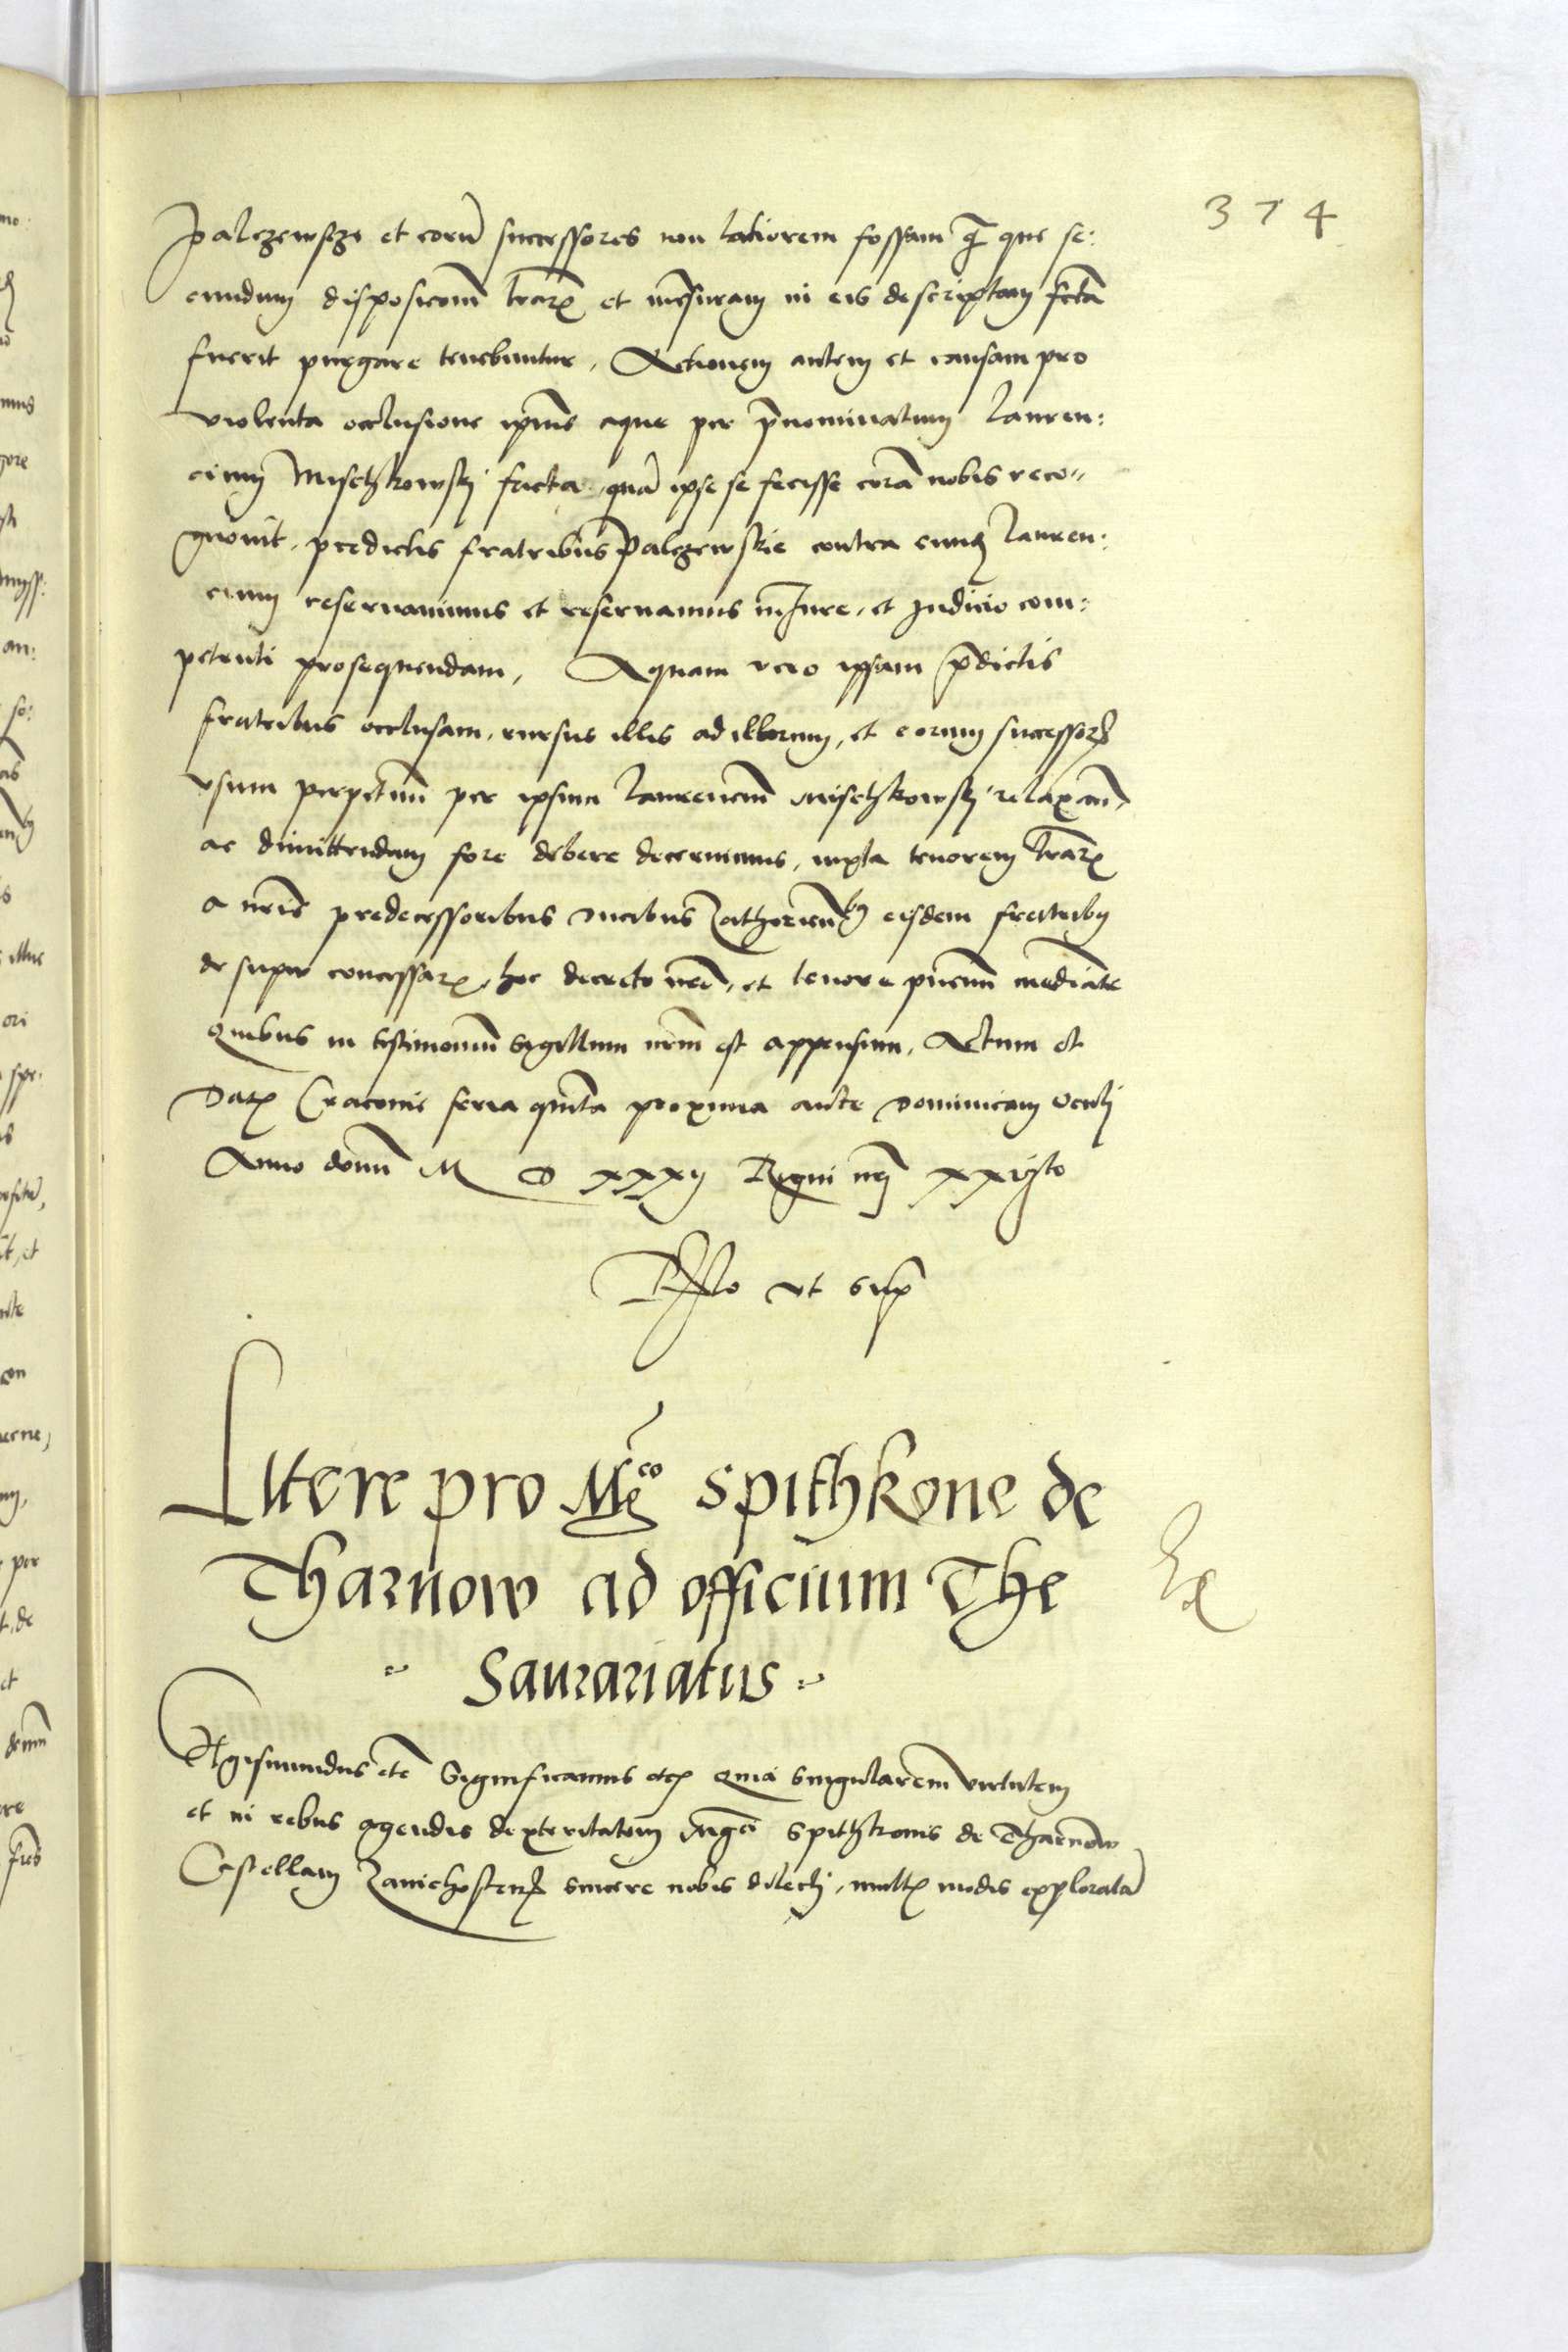 374
Palczewsczi et eorū successores non latiorem fossam q̄ que se:
cundum disposicōnē lrarꝫ et mēsuram in eis descriptam fctā
fuerit purgare tenebuntur, Actionem autem et causam pro
violenta occlusione ipsius aque per p̄nominatum Lauren:
cium Mischkowskj facta, quā ipse se fecisse corā nobis reco-
gnovit, predictis fratribus Palczewskie contra eundē Lauren:
cium reservavimus et reservamus in Jure, et Judicio com:
petenti prosequendam, Aquam vero ipsam p̄dictis
fratribus occlusam, rursus illis ad illorum, et eorum successorꝫ
vsum perpetuū per ipsum Laurenciū Mischkowskj relaxanđ,
ac dimittendam fore debere decernimus, iuxta tenorem lrarꝫ
a nrīs predecessoribus ducibus Zathoriensibꝰ eisdem fratribꝰ
desuper concessarꝫ, hoc decreto nrō, et tenore pñcium mediañte
Quibus in testimoniū Sigillum nrm̄ est appensum, Actum et
Datꝫ Cracovie feria quīta proxima ante Dominicam Oculj
Anno domī M D xxxij Regni nrj xxvjto
Rlło vt supꝫ
Littere pro Mco Spithkone de
Tharnow ad officium The
Saurariatus
Ex
Sigismundus etc̄ Significamus etcꝫ Quia singularem virtutem
et in rebus agendis dexteritatem Mgci Spithkonis de Tharnow
Castellani Zawichostenꝭ sincere nobis dilectj, multꝭ modis exploratā